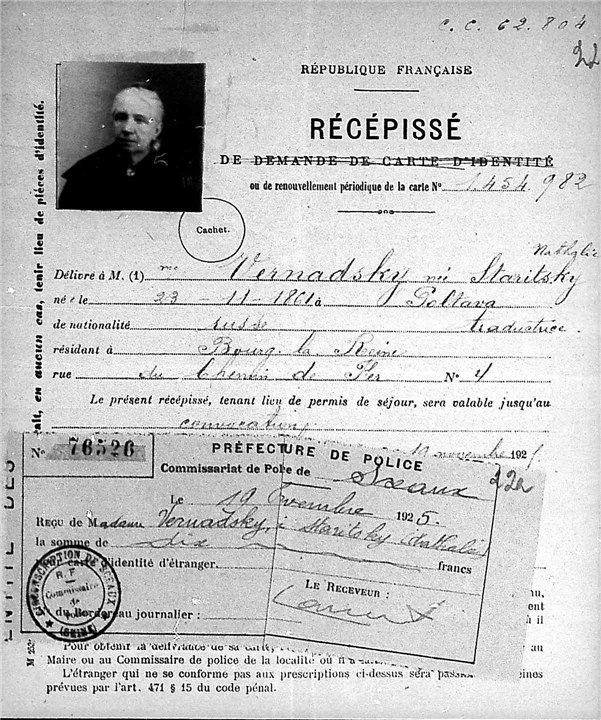 C. C. 62.804
22
RÉPUBLIQUE FRANÇAISE
RÉCÉPISSÉ
DE DEMANDE DE CARTE D'IDENTITÉ
ou de renouvellement périodique de la carte Nº 1.454.982
Cachet.
Nathalie
Délivré à M. (1) me Vernadsky née Staritsky
né e le 23 - 11 - 1861 à Poltava
de nationalité russe traductrice.
résidant à Bourg la Reine
rue du Chemin de Fer Nº 4
Le présent récépissé, tenant lieu de permis de séjour, sera valable jusqu'au
convocation
novembre 192
en aucun cas, tenir lieu de pièces d'identité.
Nº 76526
PRÉFECTURE DE POLICE
Commissariat de Police de Sceaux
22a
Le 19 novembre 1925.
REÇU de Madame Vernadsky, Staritsky (Nathalie)
la somme de dix francs
carte d'identité d'étranger.
LE RECEVEUR :
du Bordereau journalier :
CIRCONSCRIPTION DE SCEAUX
R.F.
Commissaire
de Police
(SEINE)
Pour obtenir la délivrance de sa carte, au
Maire ou au Commissaire de police de la localité où il a
L'étranger qui ne se conforme pas aux prescriptions ci-dessus sera peines
prévues par l'art. 471 § 15 du code pénal.